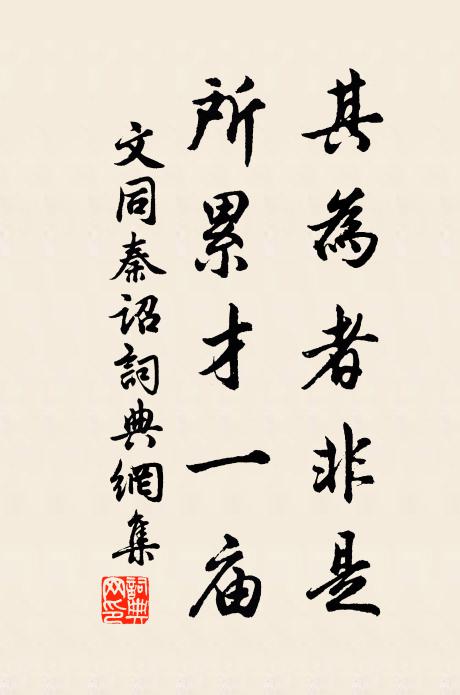 其為者非是
所累才一庙
文同秦诏詞典網集
詞典网印